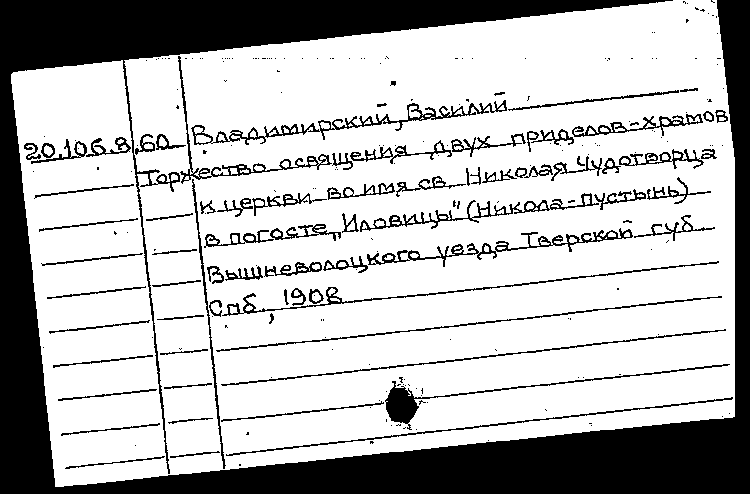 20.106.8.60 Владимирский, Василий
Торжество освящения двух приделов-храмов
к церкви во имя св. Николая Чудотворца
в погосте „Иловицы" (Никола-пустынь)
Вышневолоцкого уезда Тверской губ
Спб., 1908